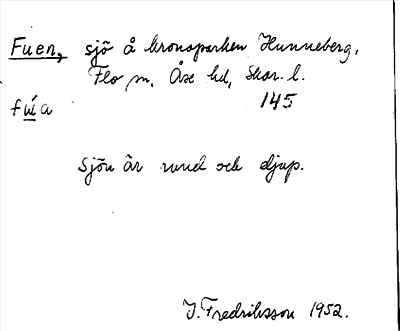 Fuen, sjö å kronoparken Hunneberg,
Flo sn, Åse hd, Skar. l.
fúia 145
Sjön är rund och djup.
I. Fredriksson 1952.